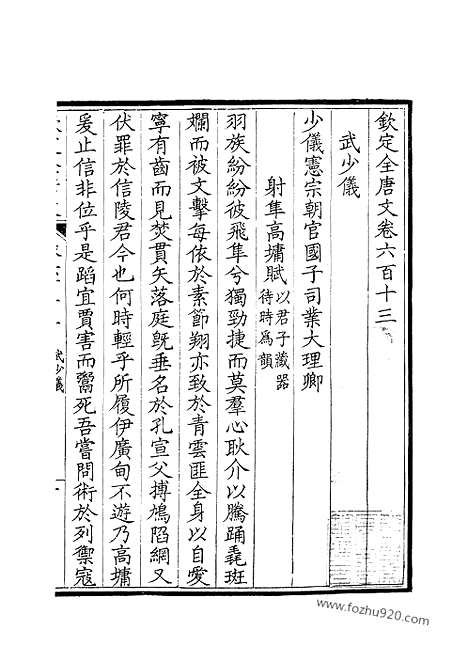 欽定全唐文卷六百十三
武少儀
少儀憲宗朝官國子司業大理卿
射隼高墉賦以君子藏器
待時為韻
羽族紛紛彼飛隼兮獨勁捷而莫羣心耿介以騰踊毳斑
斕而被文擊每依於素節翔亦致於青雲匪全身以自愛
寧有齒而見焚貫矢落庭既垂名於孔宣父搏鳩陷網又
伏罪於信陵君今也何時輕乎所履伊廣甸不遊乃高墉
爰止信非位乎是蹈宜賈害而鬻死吾嘗問術於列禦寇
武少儀
一
www.fozhu920.com